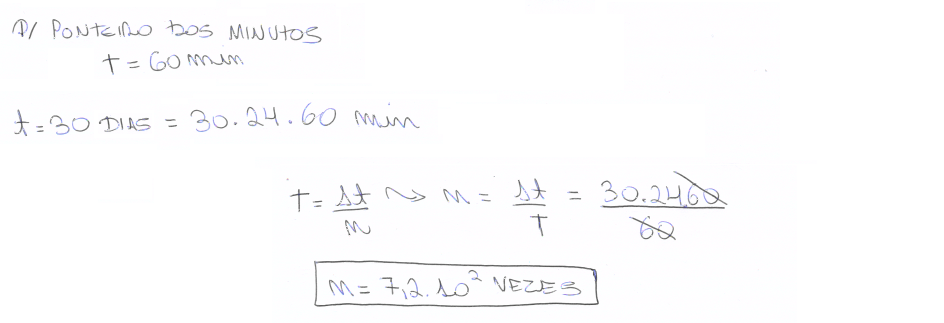 P/ PONTEIRO DOS MINUTOS
T = 60 min
t = 30 DIAS = 30.24.60 min
T = Δt/n ⇝ n = Δt/T = 30.24.60/60
n = 7,2.10² VEZES